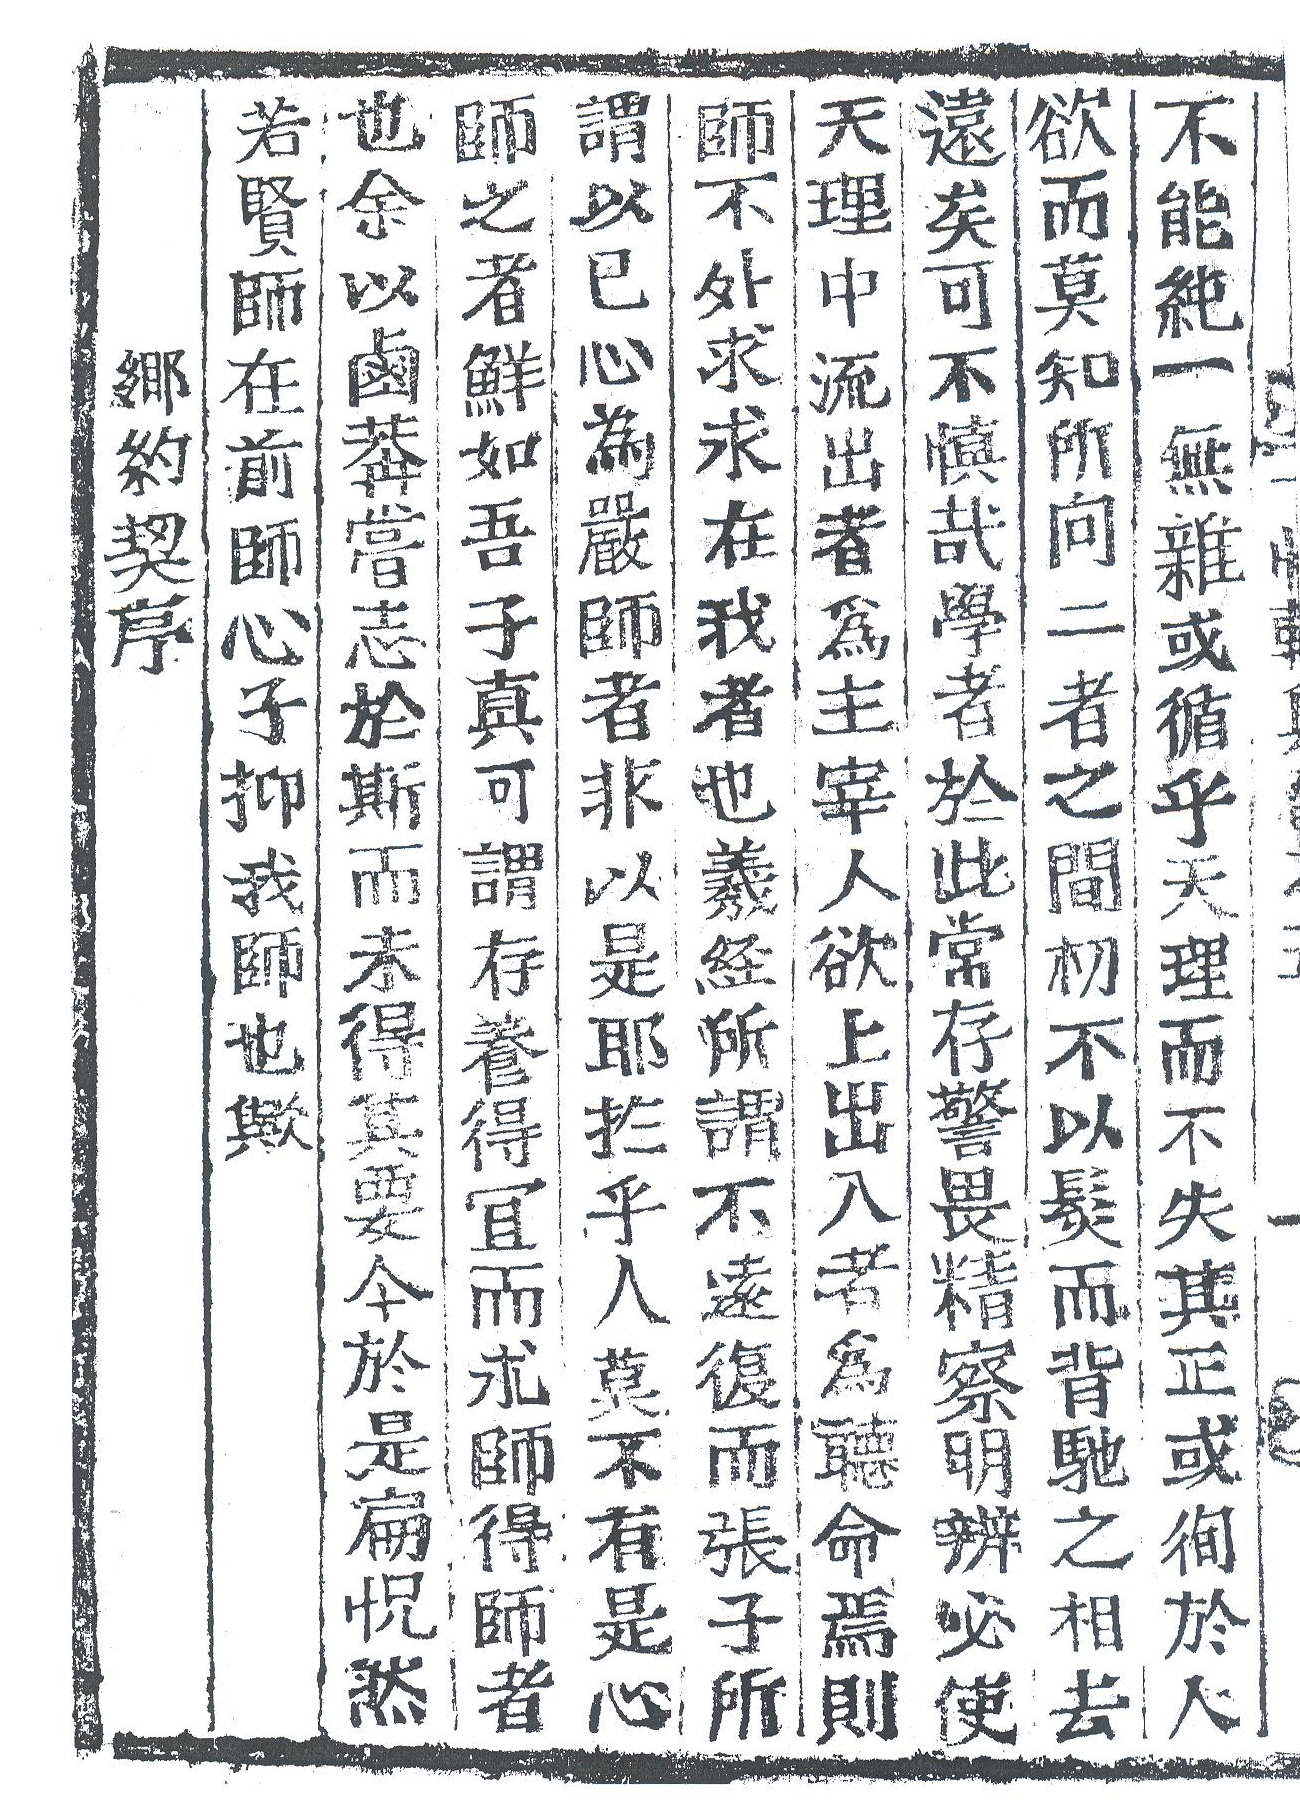 不能純一無雜或循乎天理而不失其正或徇於人
欲而莫知所向二者之間初不以髮而背馳之相去
遠矣可不愼哉學者於此常存警畏精察明辨必使
天理中流出者爲主宰人欲上出入者爲聽命焉則
師不外求求在我者也羲經所謂不遠復而張子所
謂以己心為嚴師者非以是耶於乎人莫不有是心
師之者鮮如吾子真可謂存養得宜而求師得師者
也余以鹵莽嘗志於斯而未得其要今於是扁怳然
若賢師在前師心子抑我師也歟
鄕約契序